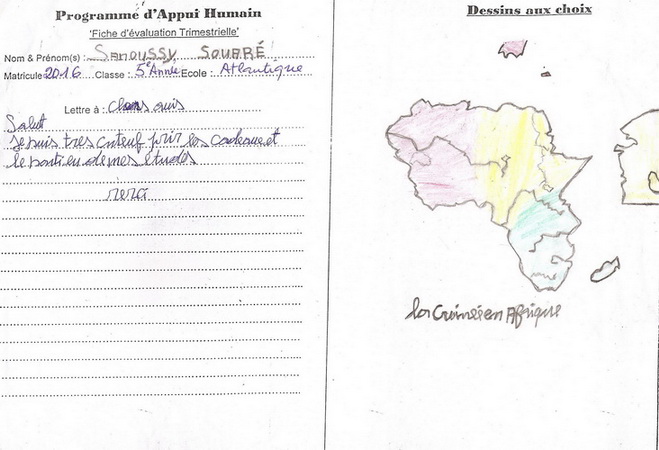 Programme d'Appui Humain
'Fiche d'évaluation Trimestrielle'
Nom & Prénom(s) : Sanoussy Souaré
Matricule 2016 Classe : 5e Année Ecole : Atlantique
Lettre à : Chers amis
Salut
Je suis tres contenf pour les cadeaux et
le soutien de mes études
merci
Dessins aux choix
la Guinée en Afrique